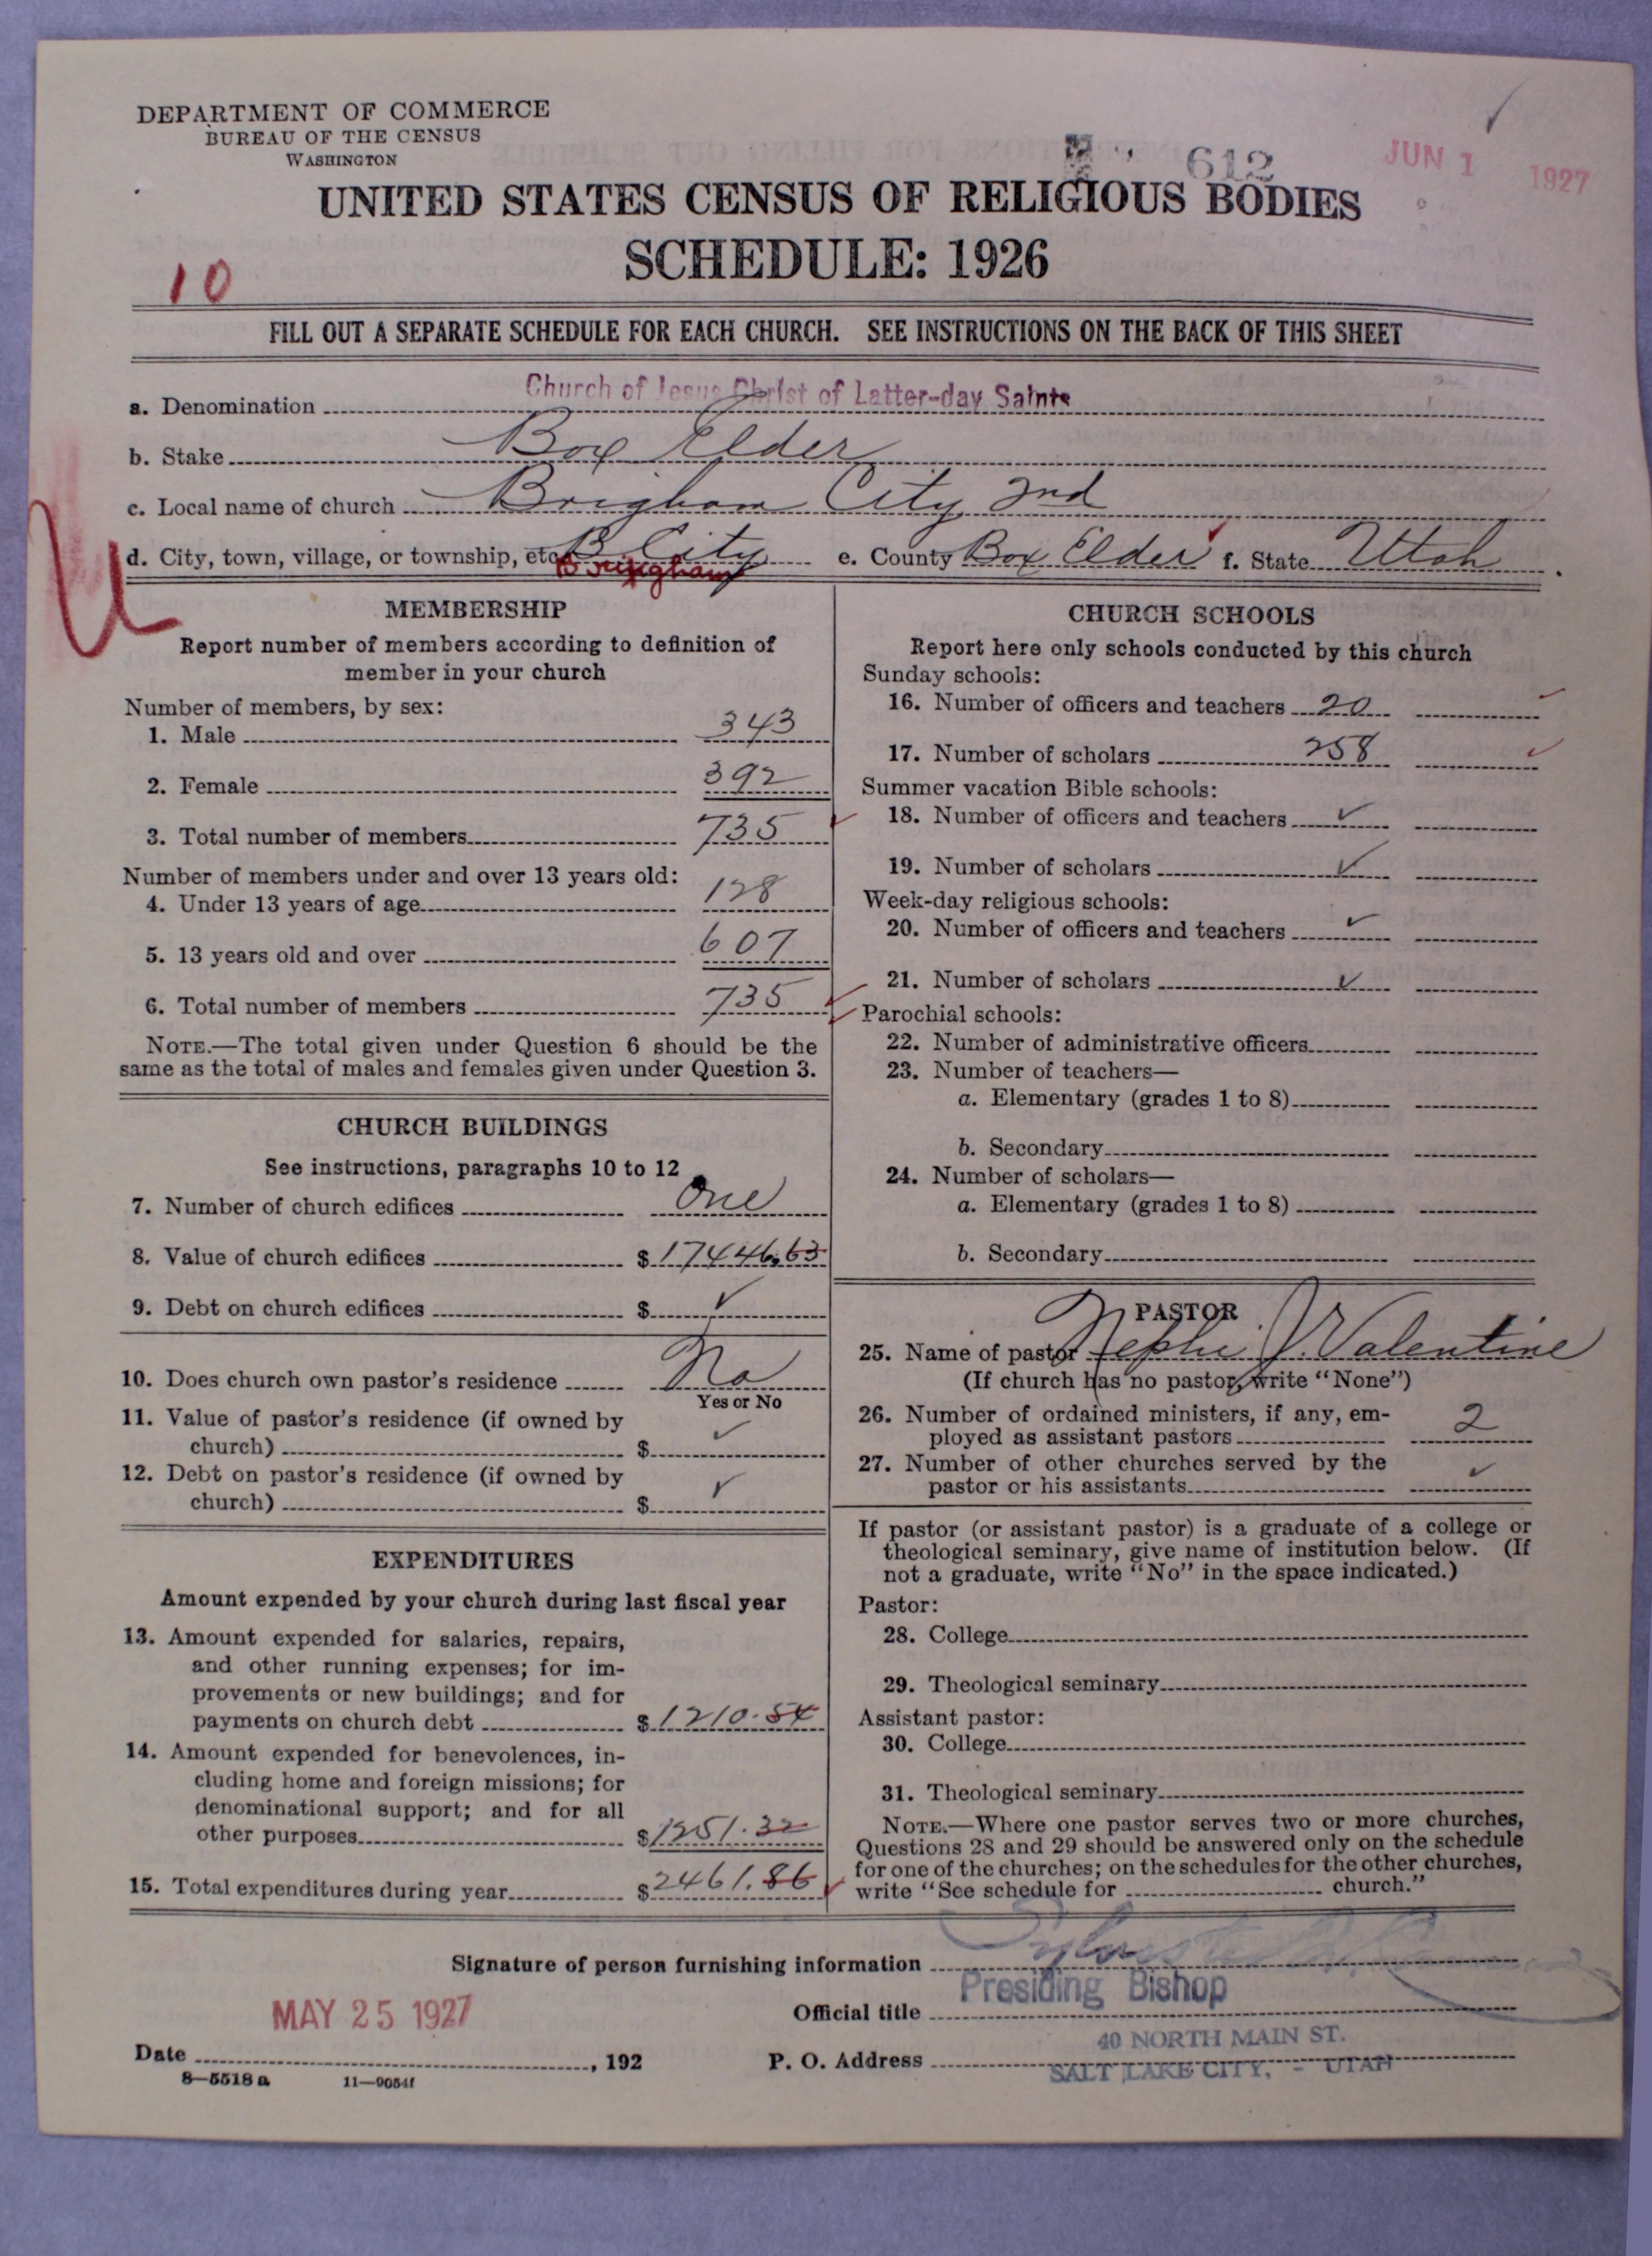 DEPARTMENT OF COMMERCE
BUREAU OF THE CENSUS
WASHINGTON
612
JUN 1 1927
UNITED STATES CENSUS OF RELIGIOUS BODIES
SCHEDULE: 1926
10
FILL OUT A SEPARATE SCHEDULE FOR EACH CHURCH. SEE INSTRUCTIONS ON THE BACK OF THIS SHEET
a. Denomination Church of Jesus Christ of Latter-day Saints
b. Stake Box Elder
c. Local name of church Brigham City 2nd
d. City, town, village, or township, etc. B. City e. County Box Elder f. State Utah
Brigham
MEMBERSHIP
Report number of members according to definition of
member in your church
Number of members, by sex:
1. Male 343
2. Female 392
3. Total number of members 735
Number of members under and over 13 years old:
4. Under 13 years of age 128
5. 13 years old and over 607
6. Total number of members 735
NOTE.—The total given under Question 6 should be the
same as the total of males and females given under Question 3.
CHURCH BUILDINGS
See instructions, paragraphs 10 to 12
7. Number of church edifices One
8. Value of church edifices $ 17446.63
9. Debt on church edifices $ ✓
10. Does church own pastor's residence No
Yes or No
11. Value of pastor's residence (if owned by
church) $ ✓
12. Debt on pastor's residence (if owned by
church) $ ✓
EXPENDITURES
Amount expended by your church during last fiscal year
13. Amount expended for salaries, repairs,
and other running expenses; for im-
provements or new buildings; and for
payments on church debt $ 1210.54
14. Amount expended for benevolences, in-
cluding home and foreign missions; for
denominational support; and for all
other purposes $ 1251.32
15. Total expenditures during year $ 2461.86
CHURCH SCHOOLS
Report here only schools conducted by this church
Sunday schools:
16. Number of officers and teachers 20
17. Number of scholars 258
Summer vacation Bible schools:
18. Number of officers and teachers ✓
19. Number of scholars ✓
Week-day religious schools:
20. Number of officers and teachers ✓
21. Number of scholars ✓
Parochial schools:
22. Number of administrative officers
23. Number of teachers—
a. Elementary (grades 1 to 8)
b. Secondary
24. Number of scholars—
a. Elementary (grades 1 to 8)
b. Secondary
PASTOR
25. Name of pastor Nephi J. Valentine
(If church has no pastor, write "None")
26. Number of ordained ministers, if any, em-
ployed as assistant pastors 2
27. Number of other churches served by the
pastor or his assistants ✓
If pastor (or assistant pastor) is a graduate of a college or
theological seminary, give name of institution below. (If
not a graduate, write "No" in the space indicated.)
Pastor:
28. College
29. Theological seminary
Assistant pastor:
30. College
31. Theological seminary
NOTE.—Where one pastor serves two or more churches,
Questions 28 and 29 should be answered only on the schedule
for one of the churches; on the schedules for the other churches,
write "See schedule for church."
Signature of person furnishing information
Official title Presiding Bishop
MAY 25 1927
Date , 192
P. O. Address 40 NORTH MAIN ST.
SALT LAKE CITY, - UTAH
8—5518 a 11—9054f